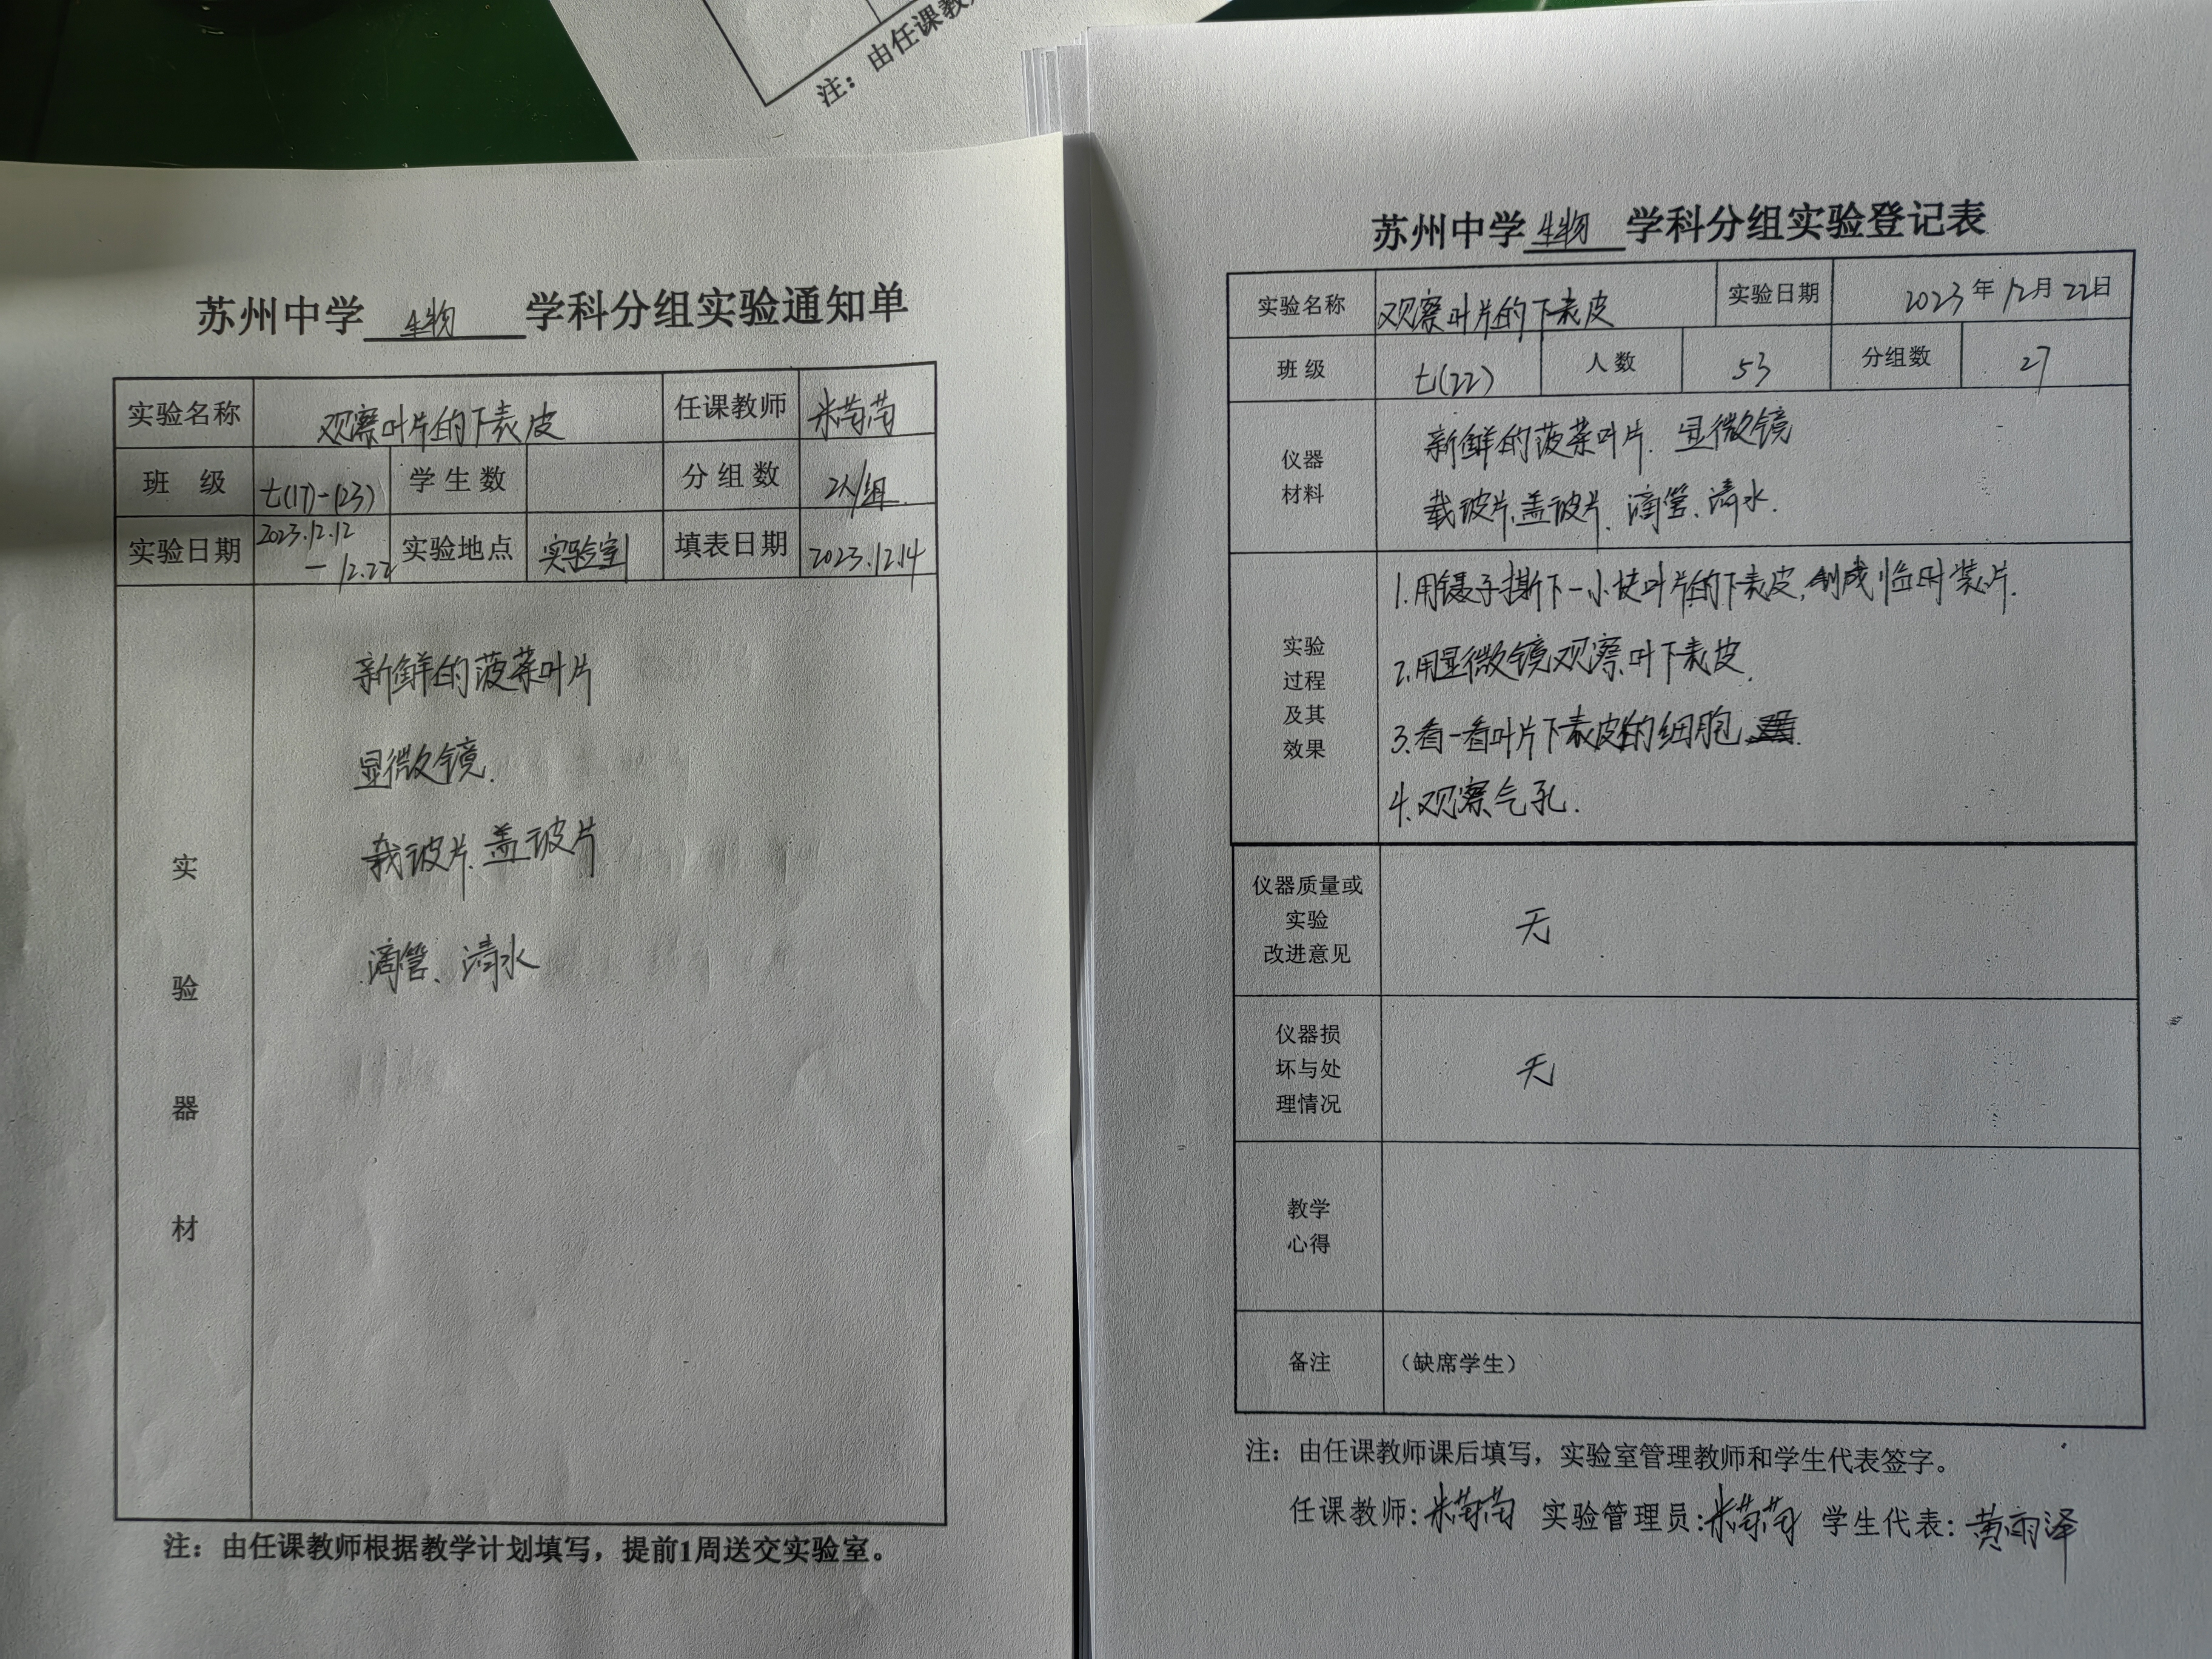 注：由任课教
苏州中学 生物 学科分组实验通知单
实验名称 观察叶片的下表皮 任课教师 米菊菊
班 级 七(17)-(23) 学生数 分组数 2人/组
实验日期 2023.12.12 - 12.22 实验地点 实验室 填表日期 2023.12.14
实验器材
新鲜的菠菜叶片
显微镜.
载玻片、盖玻片
滴管、清水
注：由任课教师根据教学计划填写，提前1周送交实验室。
苏州中学 生物 学科分组实验登记表
实验名称 观察叶片的下表皮 实验日期 2023年12月22日
班级 七(22) 人数 53 分组数 27
仪器材料
新鲜的菠菜叶片、显微镜
载玻片、盖玻片、滴管、清水.
实验过程及其效果
1.用镊子撕下一小块叶片的下表皮,制成临时装片.
2.用显微镜观察叶下表皮.
3.看一看叶片下表皮的细胞
4.观察气孔.
仪器质量或实验改进意见 无
仪器损坏与处理情况 无
教学心得
备注 （缺席学生）
注：由任课教师课后填写，实验室管理教师和学生代表签字。
任课教师：米菊菊 实验管理员：米菊菊 学生代表：黄雨泽